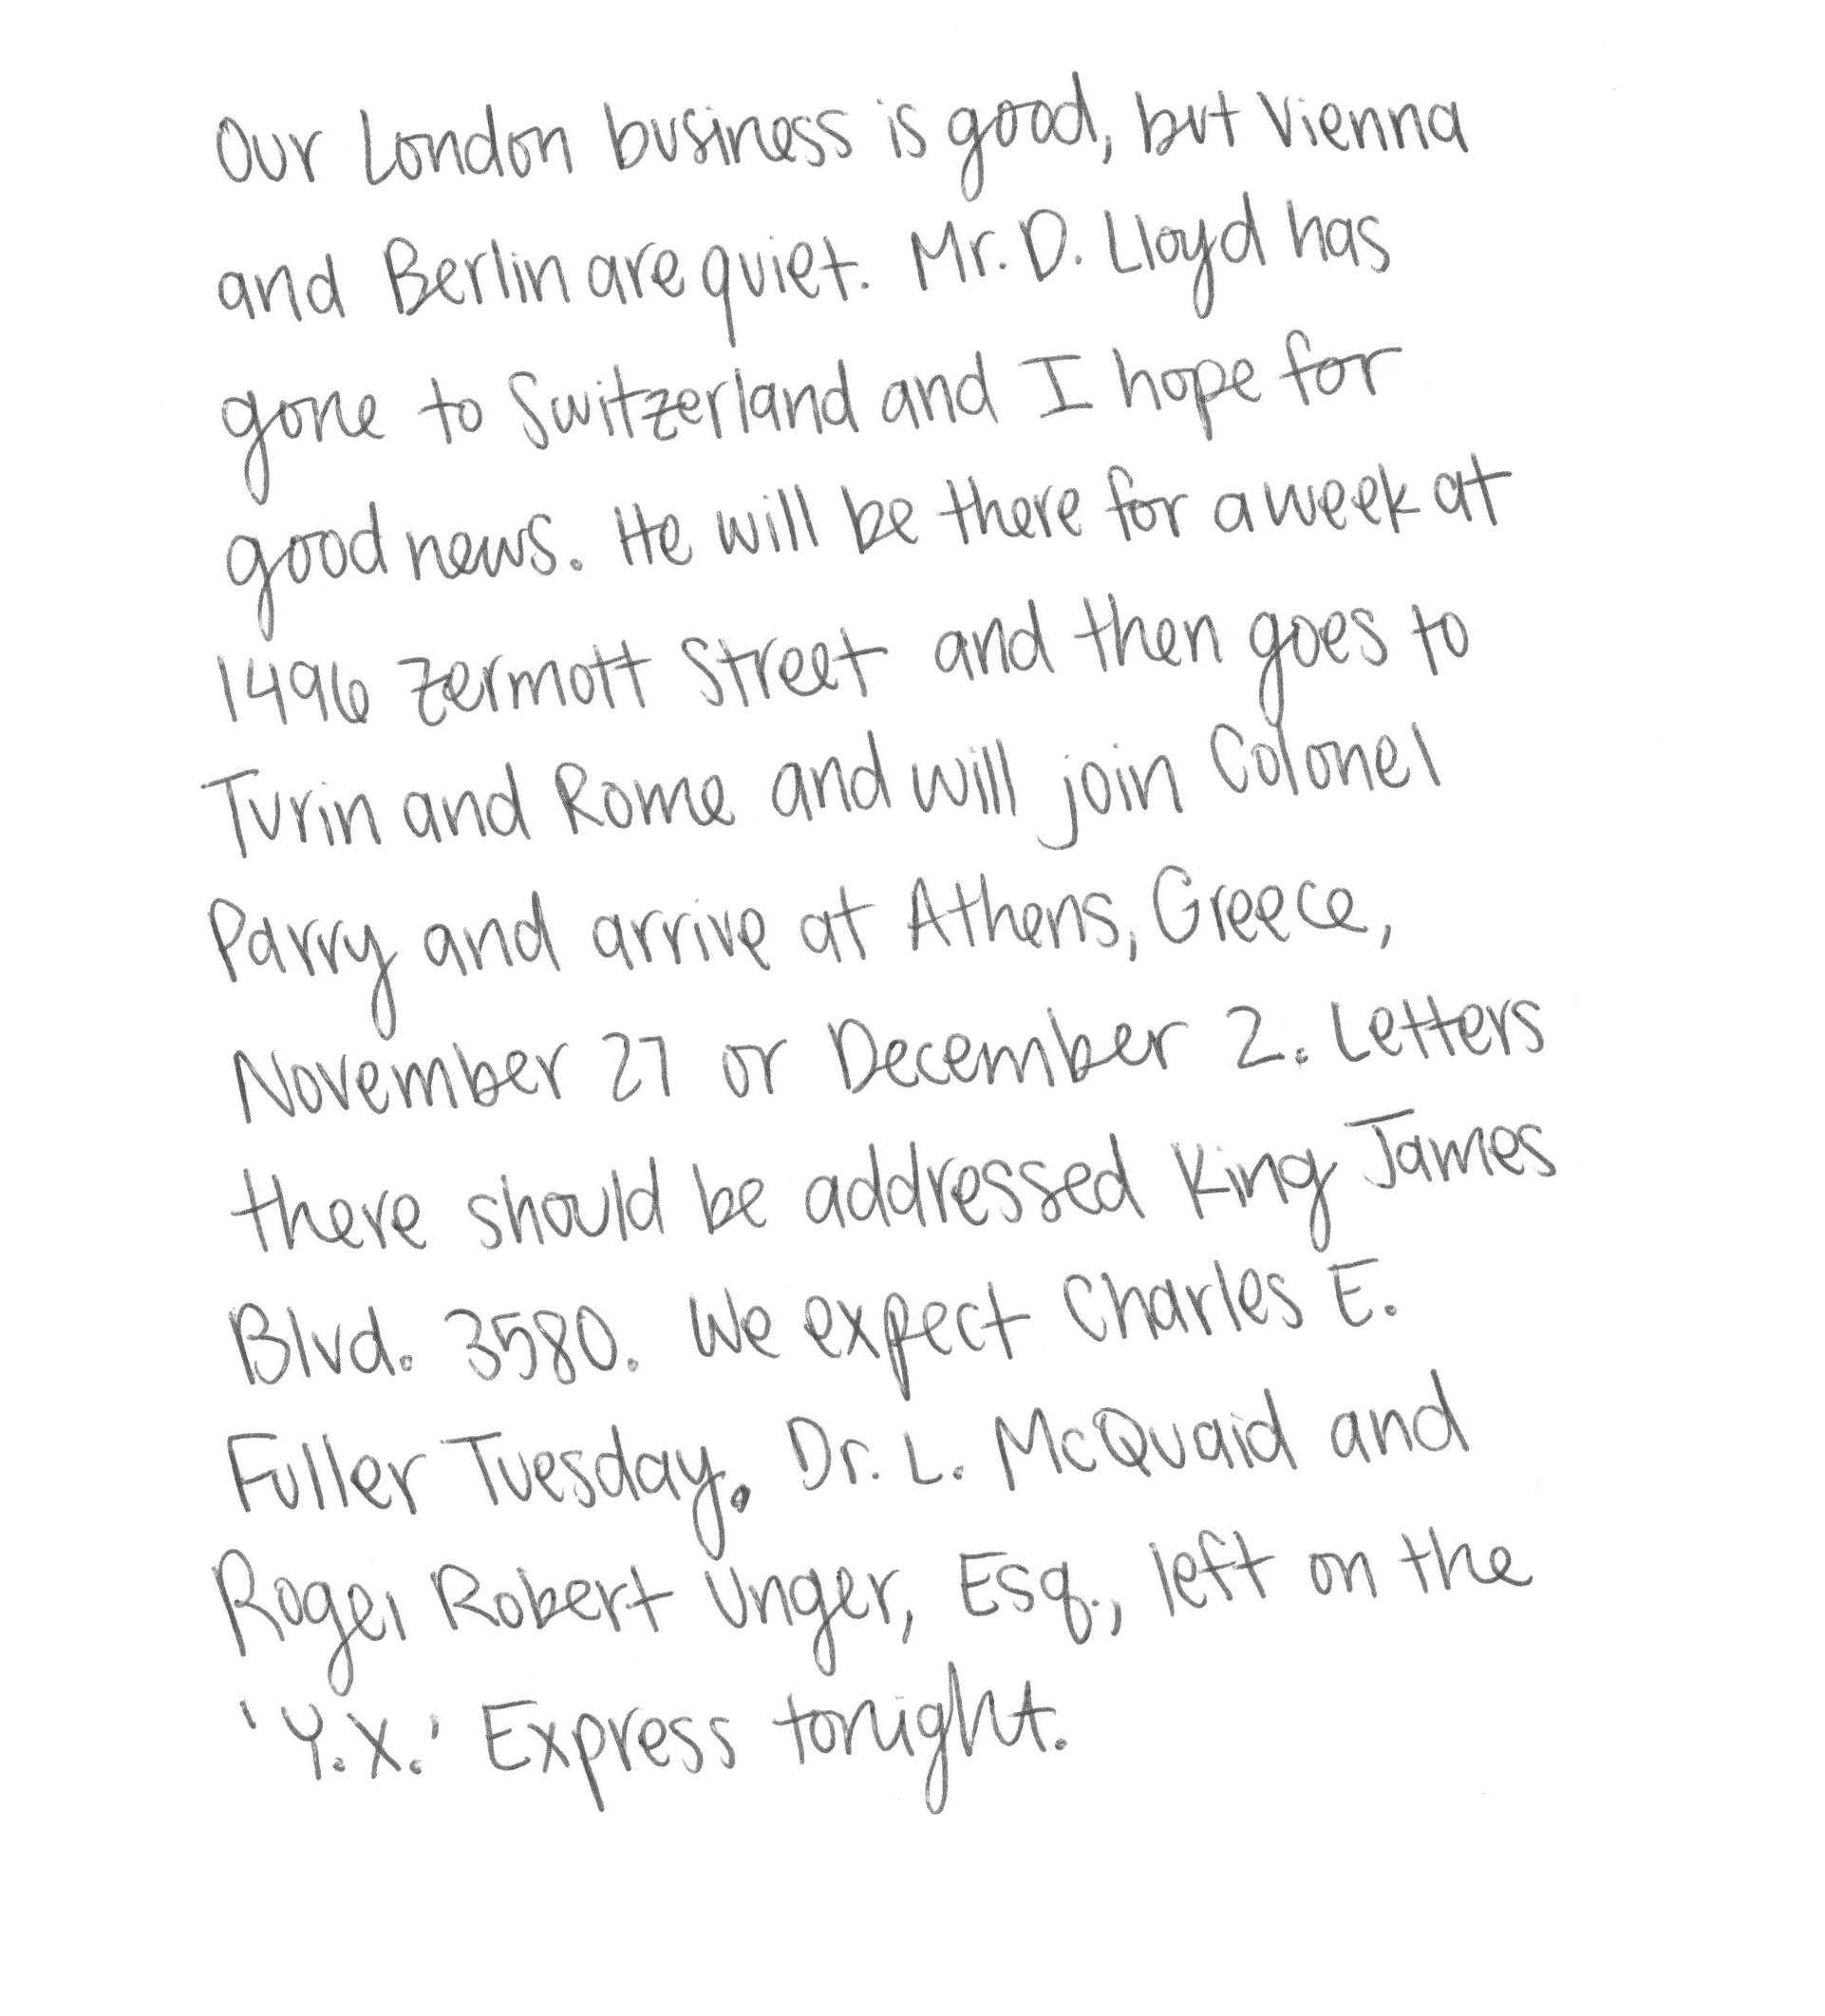 Our London business is good, but Vienna
and Berlin are quiet. Mr. D. Lloyd has
gone to Switzerland and I hope for
good news. He will be there for a week at
1496 Zermott Street and then goes to
Turin and Rome and will join Colonel
Parry and arrive at Athens, Greece,
November 27 or December 2. Letters
there should be addressed King James
Blvd. 3580. We expect Charles E.
Fuller Tuesday. Dr. L. McQuaid and
Roger Robert Unger, Esq., left on the
'Y.X.' Express tonight.